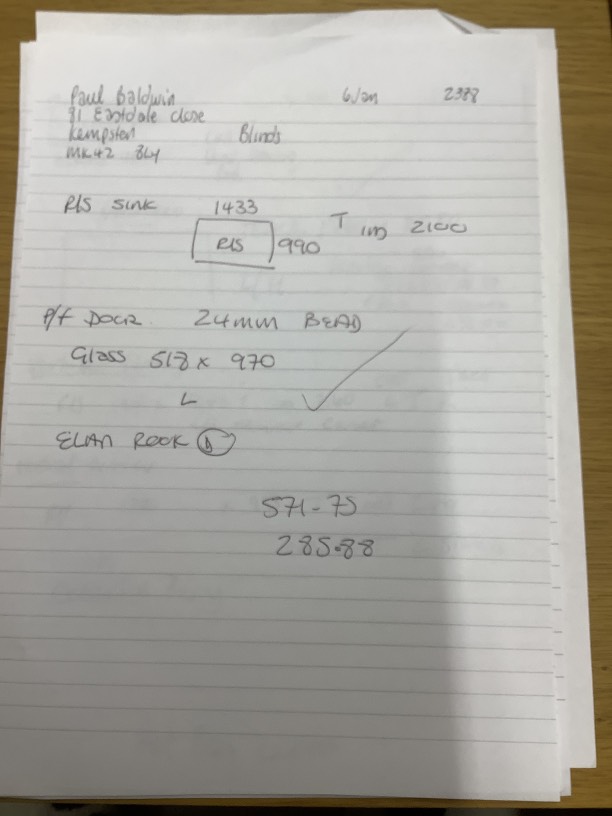 Paul Baldwin 6 Jan 2388
81 Eastdale close
Kempston Blinds
MK42 8LY
R/S SINK 1433
R/S 990 T 1M 2100
P/f DOOR. 24mm BEAD
Glass 518 x 970
L
ELAN ROOK
571-75
285.88